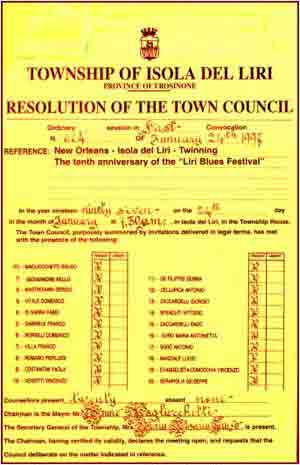 TOWNSHIP OF ISOLA DEL LIRI
PROVINCE OF FROSINONE
RESOLUTION OF THE TOWN COUNCIL
Ordinary session in First Convocation
N. Of January 24th 1997
REFERENCE: New Orleans - Isola del Liri - Twinning
The tenth anniversary of the "Liri Blues Festival"
In the year nineteen ninety seven on the 24th day
in the month of January at 7,30 p.m. in Isola del Liri, in the Township House.
The Town Council, purposely summoned by invitations delivered in legal terms, has met
with the presence of the following:
1) MAGLIOCCHETTI BRUNO
2) GIOVANNONE
3) MASTROIANNI SERGIO
4) VITALE DOMENICO
5) FABIO
6) GABRIELE FRANCO
7) DOMENICO
8) VILLA FRANCO
9) ROMANO PIERLUIGI
10) COSTANTINI PAOLA
11) VENDITTI VINCENZO
DE FILIPPIS GIANNA
ANTONIO
ZACCARDELLI GIORGIO
VITTORIO
ZACCARDELLI ENZO
MARIA ANTONIETTA
ANTONIO
LUIGI
EVANGELISTA VINCENZO
GIUSEPPE
Counsellors present twenty absent none
Chairman is the Mayor Mr. Bruno Magliocchetti
The Secretary General of the Township, Mrs. is present.
The Chairman, having verified by validity, declares the meeting open, and requests that the
Council deliberate on the matter indicated in reference.